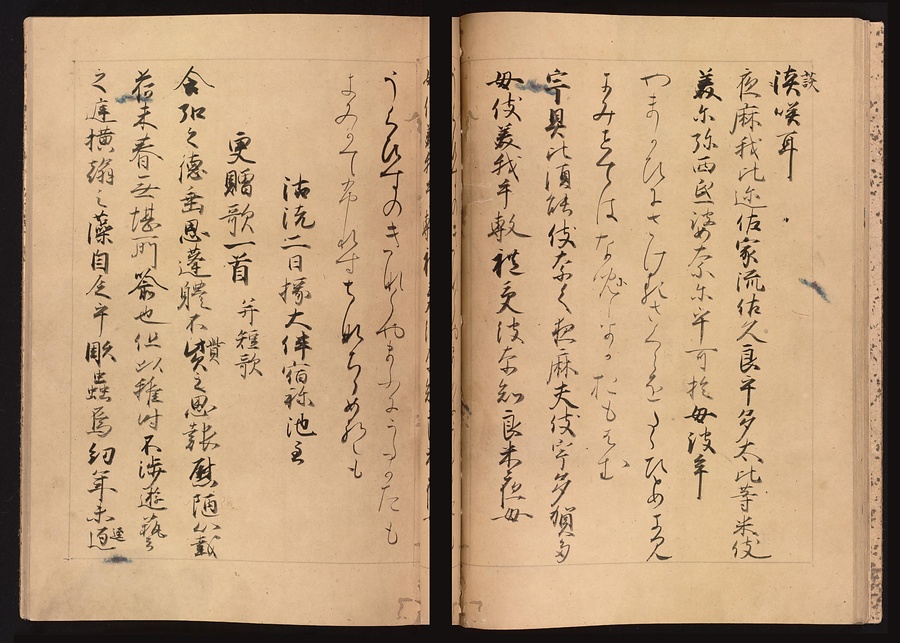 談
淡咲耳
夜麻我比迩佐家流佐久良乎多太比等米伎
美尓弥西氐婆奈尓乎可於母波牟
やまかひにさけるさくらをたゝひとめきみ
にみせてはなにをかおもはむ
宇具比須能伎奈久夜麻夫伎宇多賀多
母伎美我手敷礼受波奈知良米夜母
うくひすのきなくやまふきうたかたも
きみかてふれすはなちらめやも
沽洗二日掾大伴宿祢池主
更贈歌一首 并短歌
含弘之德垂恩蓬體不貲之思報慰陋心戴
荷未春無堪所喩也但以稚時不渉遊藝
之庭横翰之藻自乏乎彫蟲焉幼年未逕